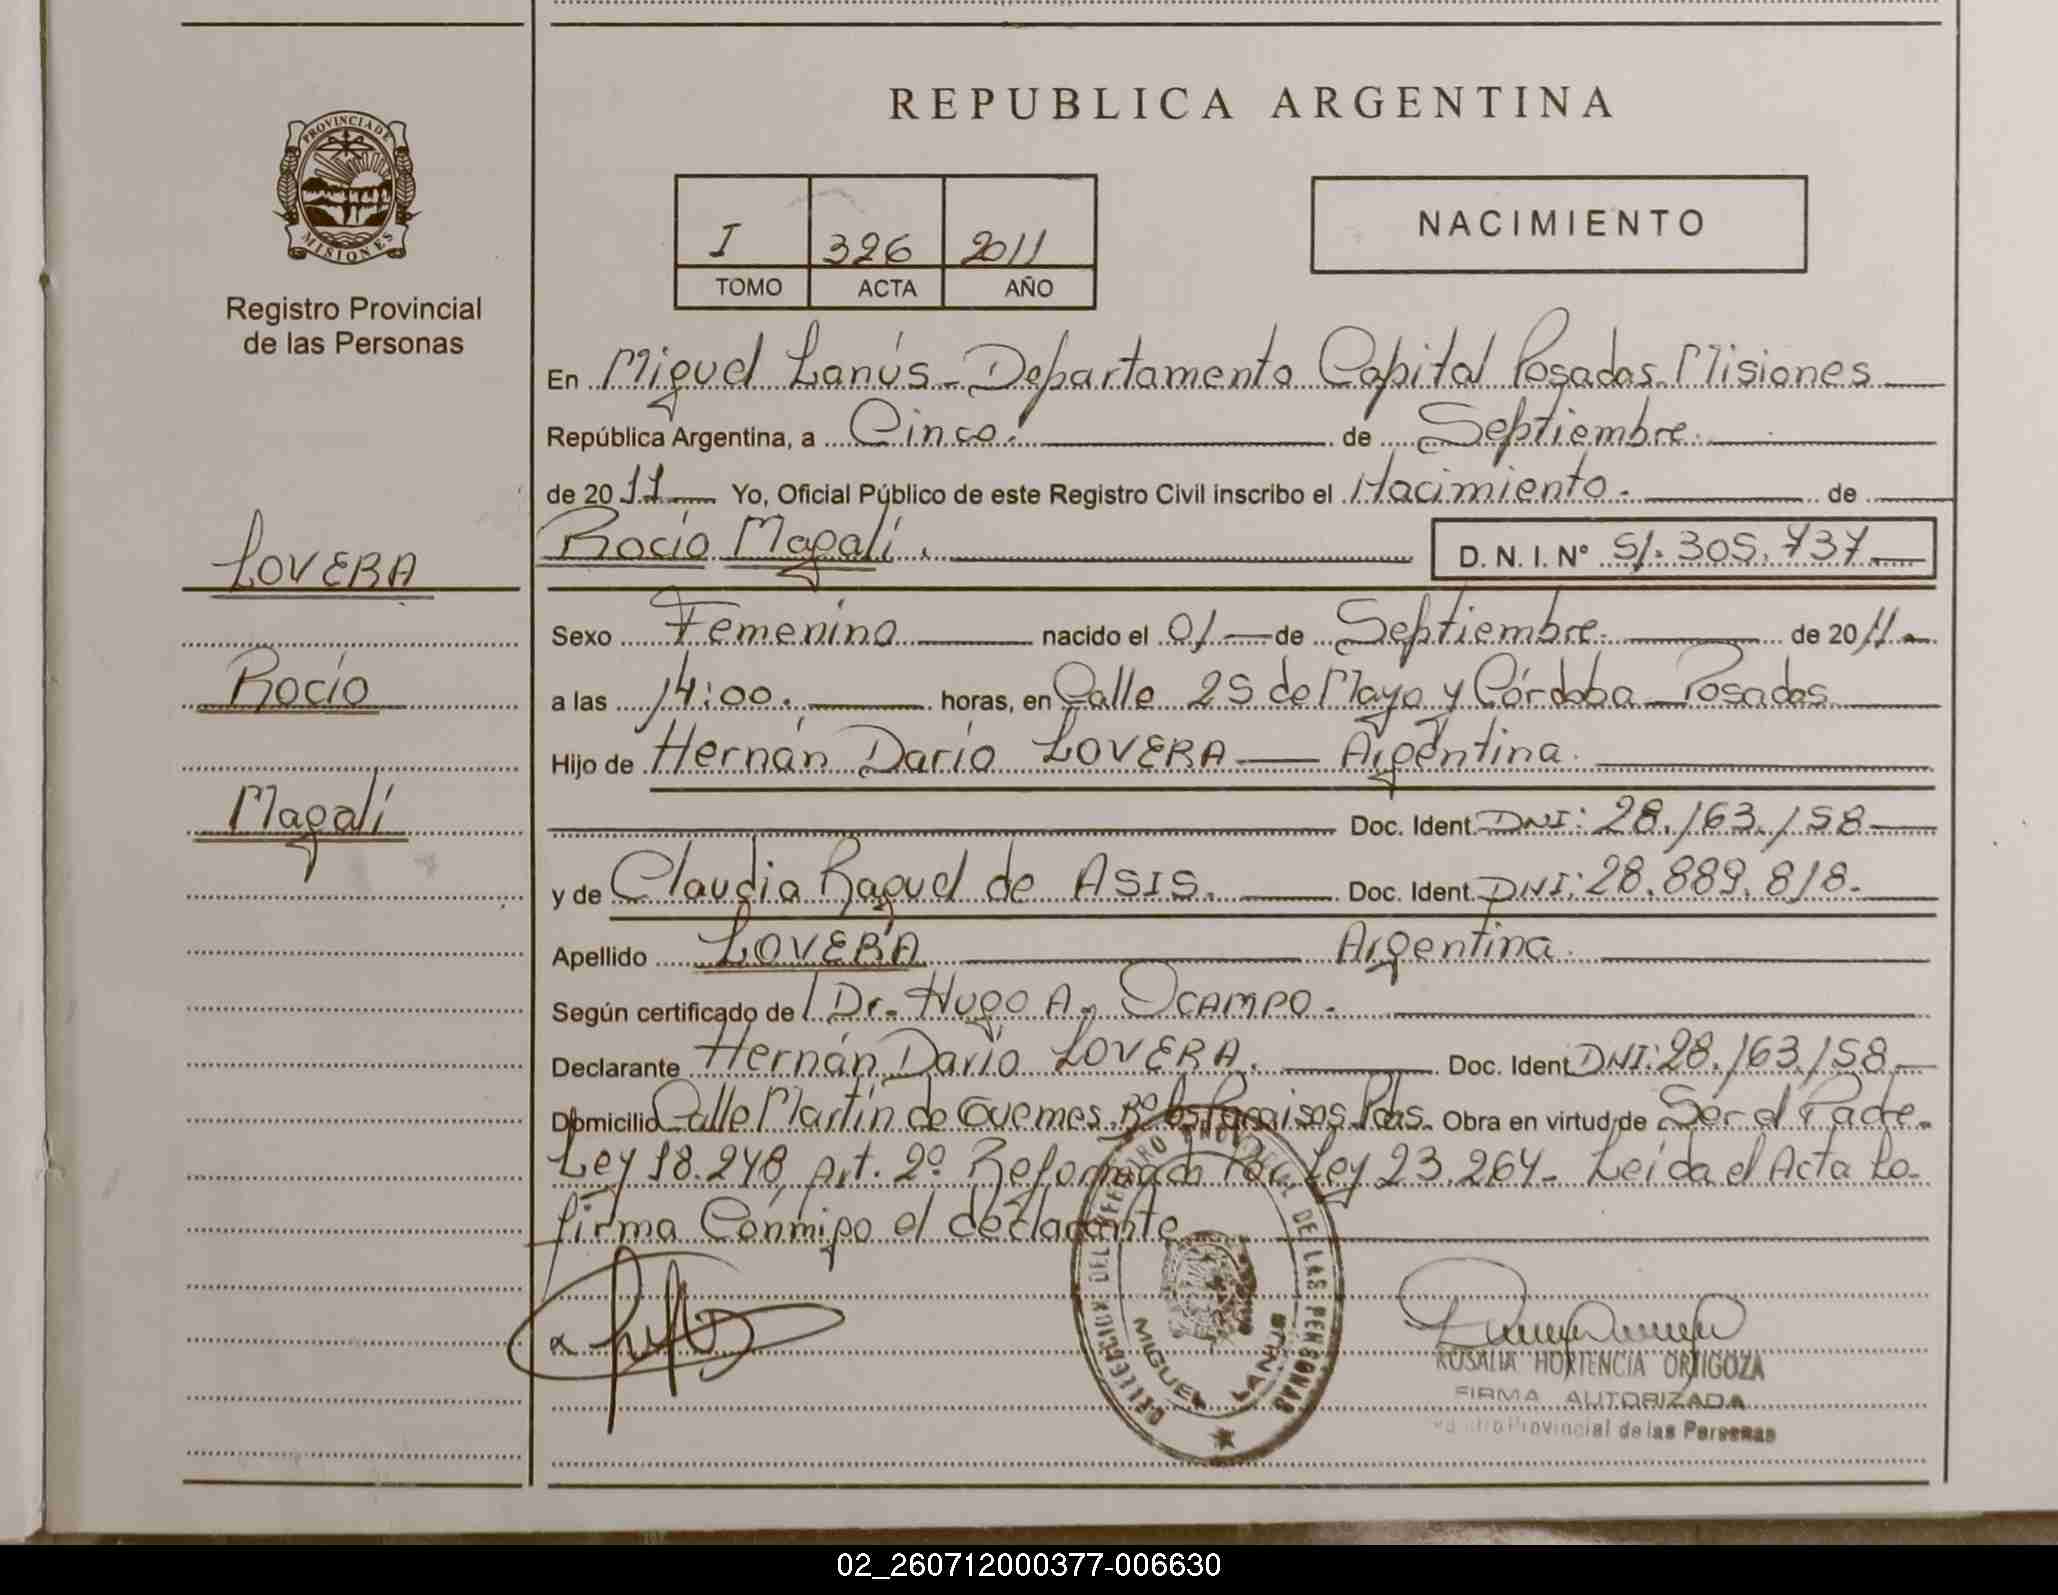 REPUBLICA ARGENTINA
PROVINCIA DE MISIONES
Registro Provincial
de las Personas
I 326 2011
TOMO ACTA AÑO
NACIMIENTO
En Miguel Lanús - Departamento Capital Posadas Misiones
República Argentina, a Cinco. de Septiembre.
de 2011 Yo, Oficial Público de este Registro Civil inscribo el Nacimiento. de
Rocío Magalí. D. N. I. N° 51.305.737
LOVERA
Rocío
Magalí
Sexo Femenino nacido el 01 de Septiembre. de 2011.
a las 14:00. horas, en Calle 25 de Mayo y Córdoba - Posadas
Hijo de Hernán Darío LOVERA — Argentina.
Doc. Ident. DNI: 28.163.158
y de Claudia Raquel de ASIS. Doc. Ident. DNI: 28.889.818.
Apellido LOVERA Argentina.
Según certificado de Dr. Hugo A. OCAMPO.
Declarante Hernán Darío LOVERA. Doc. Ident DNI: 28.163.158
Domicilio Calle Martín de Güemes, Bº los Paraisos Pdas. Obra en virtud de Ser el Padre.
Ley 18.248 art. 2º Reformada Por Ley 23.264 - Leída el Acta La
firma Conmigo el declarante
DELEGACION DEL REGISTRO PROVINCIAL DE LAS PERSONAS
MIGUEL LANUS
ROSALIA HORTENCIA ORTIGOZA
FIRMA AUTORIZADA
Registro Provincial de las Personas
02_260712000377-006630